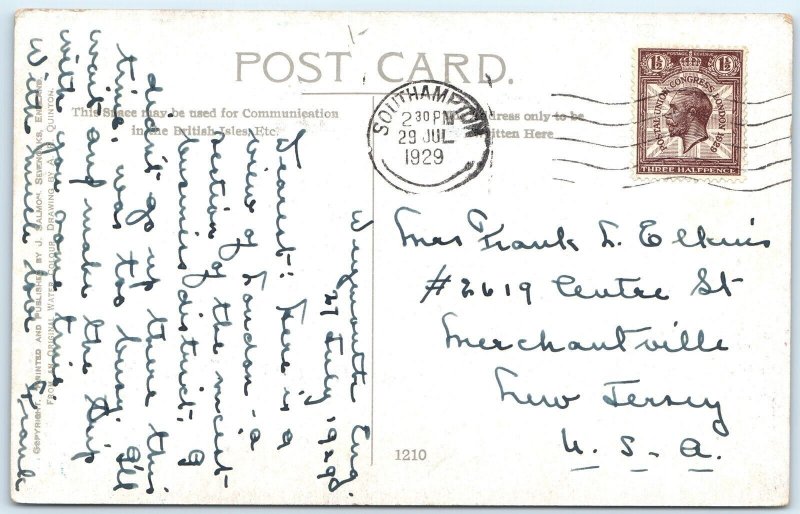 POST CARD.
This Space may be used for Communication
in the British Isles, Etc.
dress only to be
itten Here
SOUTHAMPTON
2 30 PM
29 JUL
1929
1½ 1½
POSTAL UNION CONGRESS LONDON 1929
THREE HALFPENCE
Weymouth Eng.
27 July, 1929.
Dearest: Here is a
view of London - a
section of the nicest
business district. I
didn't go up there this
time, was too busy. I'll
wait and make the trip
with you some time.
With much love Frank
Mrs Frank L. Elkins
#2619 Centre St
Merchantville
New Jersey
U. S. A.
1210
COPYRIGHT. PRINTED AND PUBLISHED BY J. SALMON, SEVENOAKS, ENGLAND.
FROM AN ORIGINAL WATER COLOUR DRAWING BY A. QUINTON.